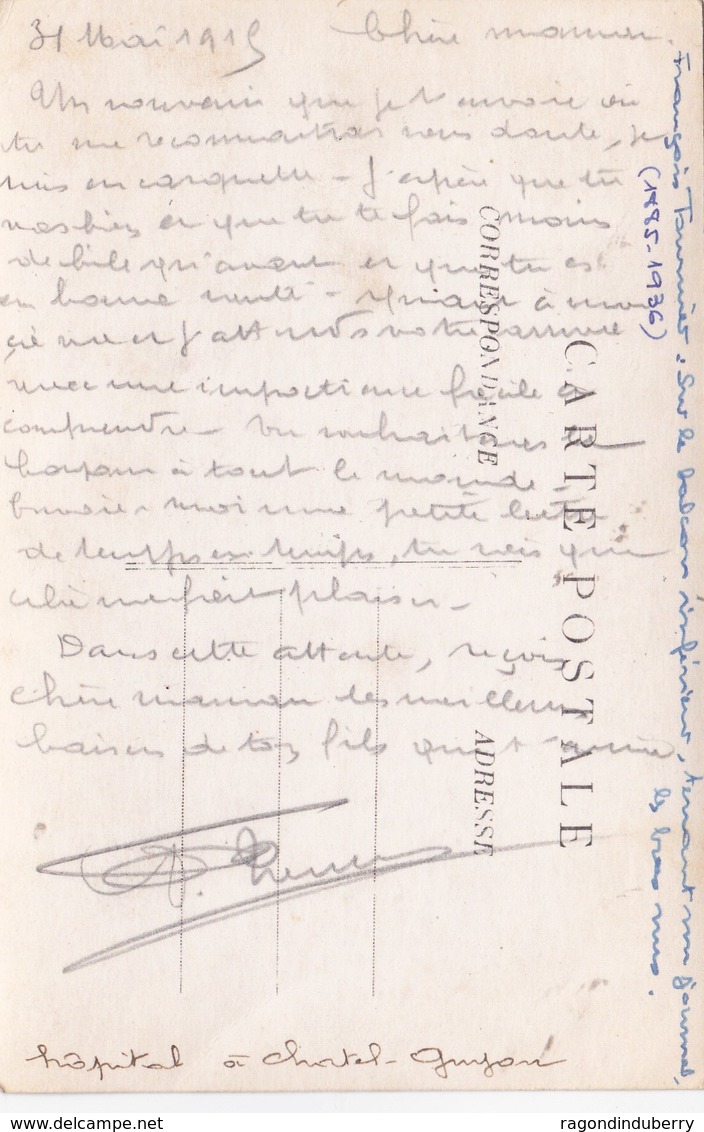 31 Mai 1915 Chère maman.
Un souvenir que je t'envoie où
tu me reconnaitras sans doute, je
suis en casquette - J'espère que tu
vas bien et que tu te fais moins
de bile qu'avant et que tu es
en bonne santé - Quant à moi
ça va et j'attends votre arrivée
avec une impatience facile à
comprendre - Tu souhaiteras le
bonjour à tout le monde -
Envoie-moi une petite lettre
de temps en temps, tu sais que
cela me fait plaisir -
Dans cette attente, reçois
chère maman les meilleurs
baisers de ton fils qui t'aime
hôpital à Chatel-Guyon
CARTE POSTALE
CORRESPONDANCE
ADRESSE
François Tournier. Sur le balcon inférieur, tenant un journal,
les bras nus.
(1885-1936)
delcampe.net
ragondinduberry